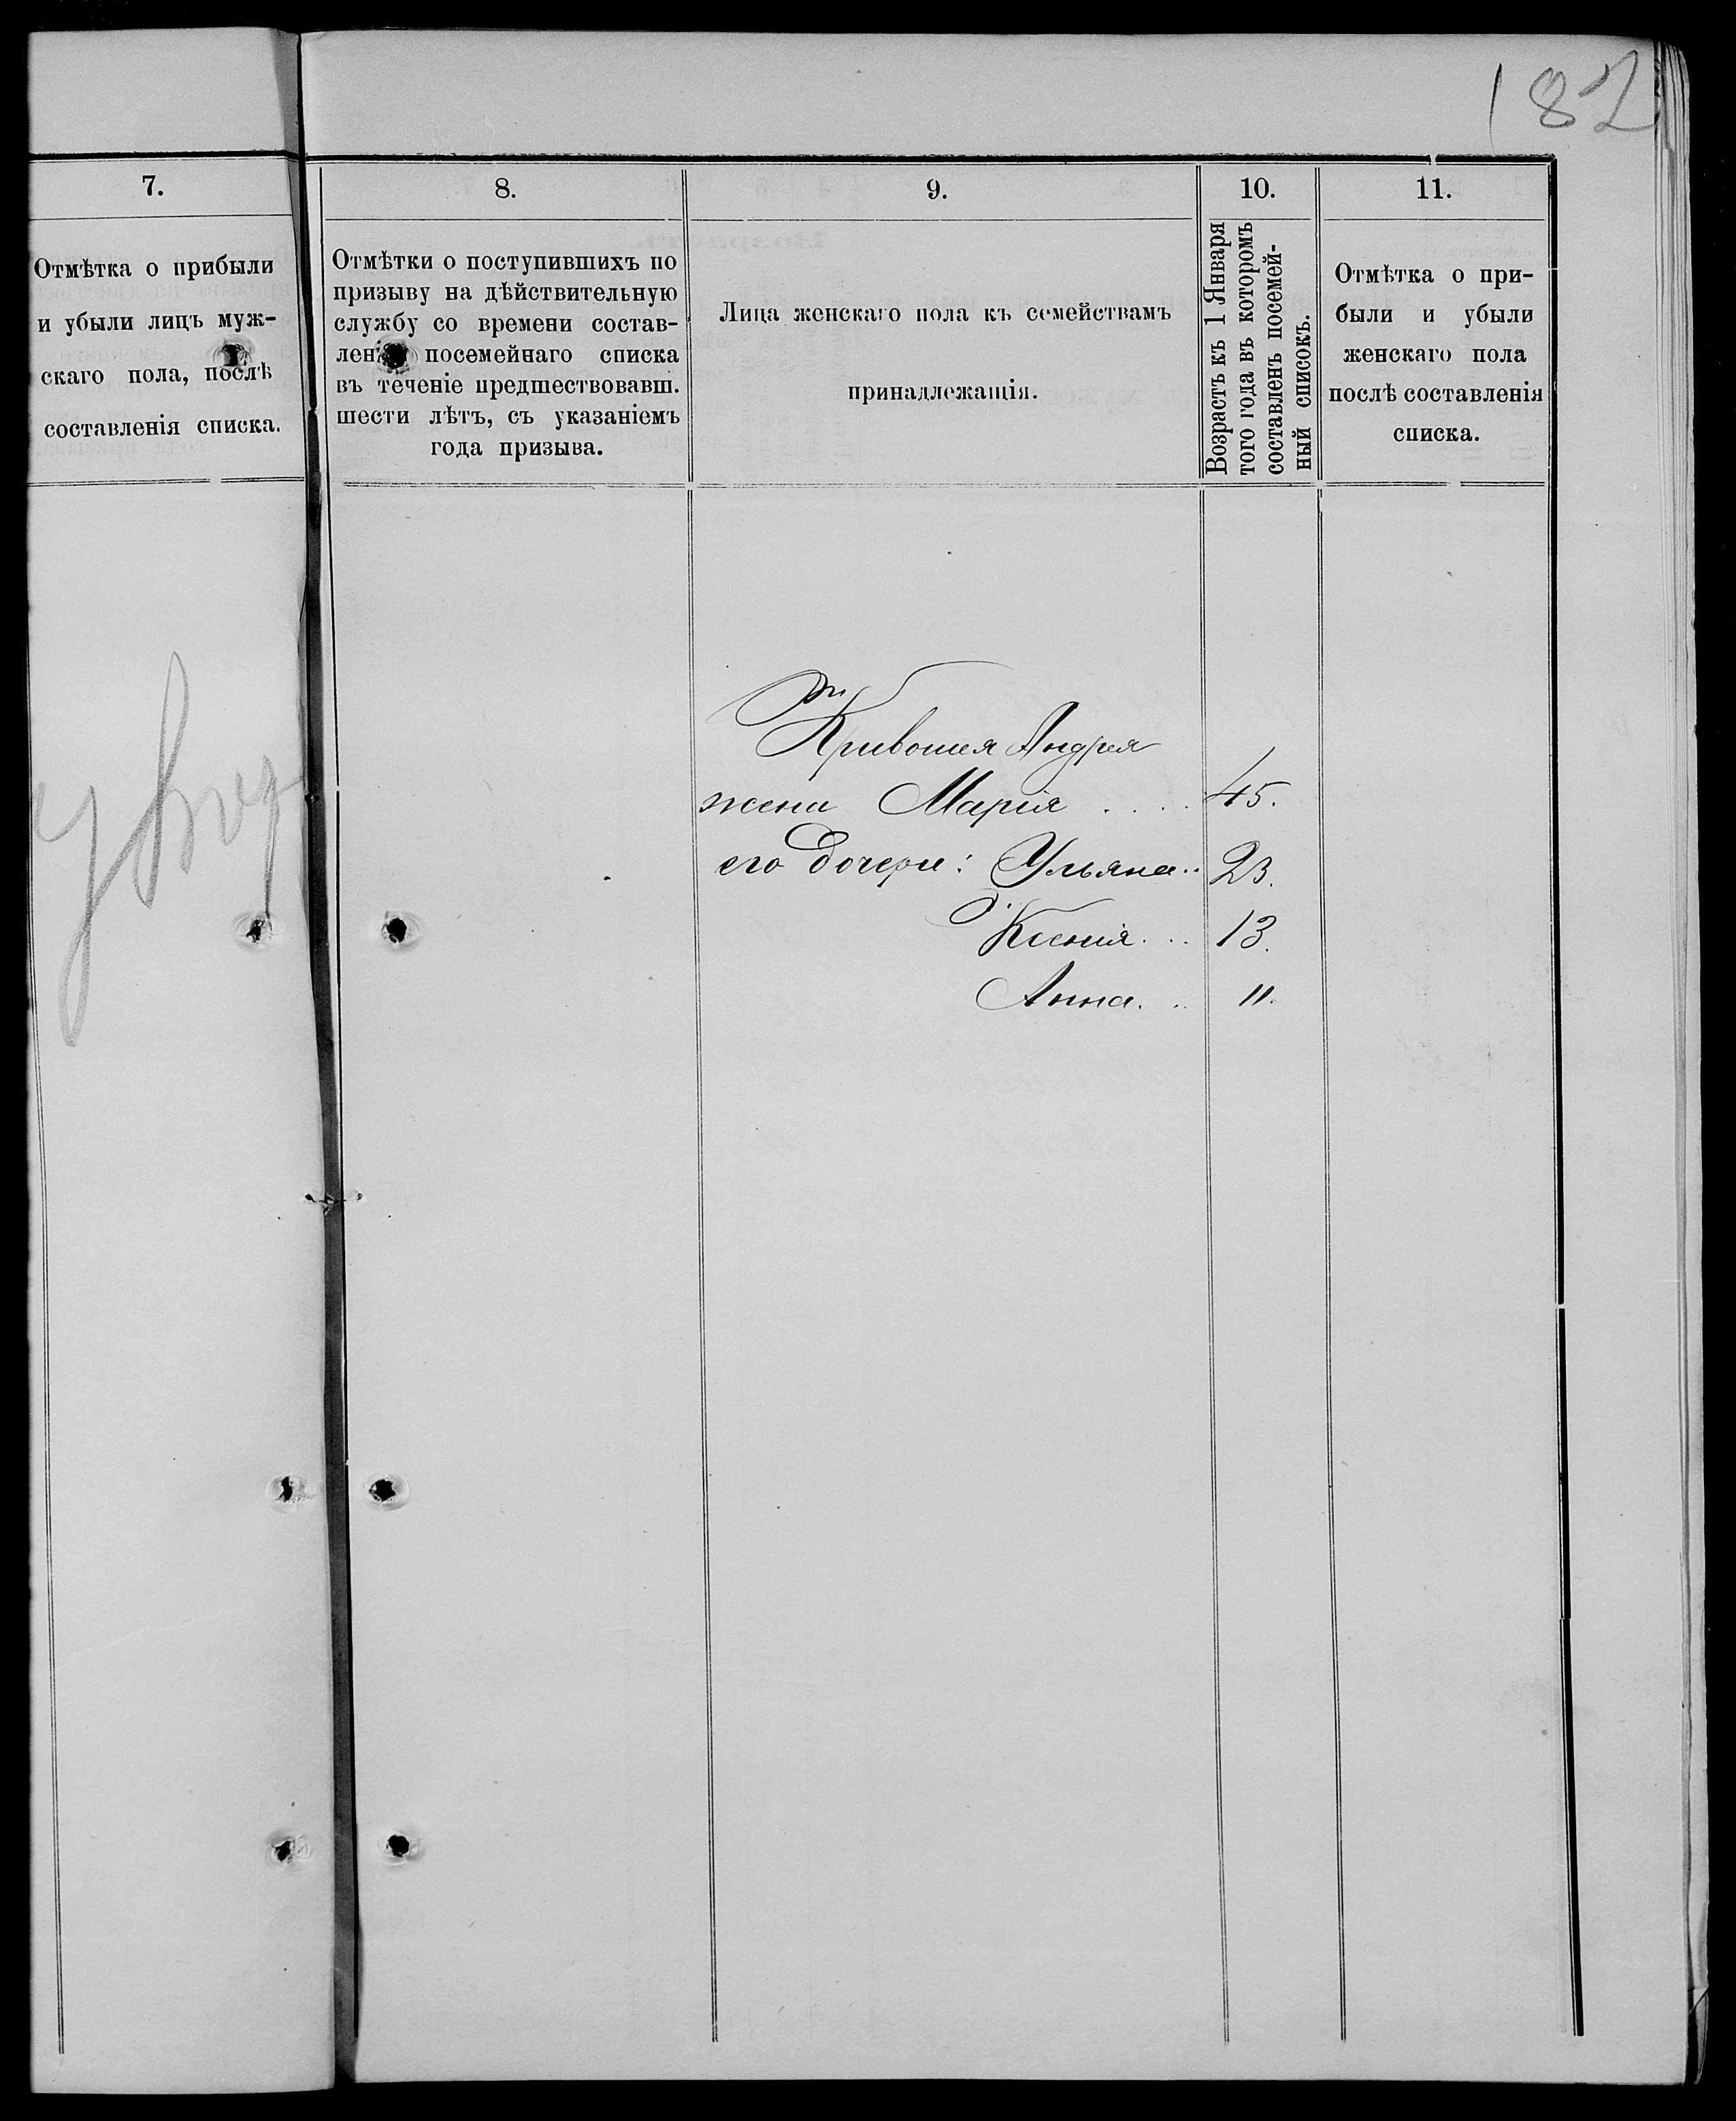 182
7.
Отмѣтка о прибыли
и убыли лицъ муж-
скаго пола, послѣ
составленія списка.
8.
Отмѣтки о поступившихъ по
призыву на дѣйствительную
службу со времени состав-
ленія посемейнаго списка
въ теченіе предшествовавш.
шести лѣтъ, съ указаніемъ
года призыва.
9.
Лица женскаго пола къ семействамъ
принадлежащія.
10.
Возрастъ къ 1 Января
того года въ которомъ
составленъ посемей-
ный списокъ.
11.
Отмѣтка о при-
были и убыли
женскаго пола
послѣ составленія
списка.
Кривошея Андрея
жена Марія . . . . 45.
его дочери: Ульяна.. 23.
Ксенія. .. 13.
Анна. .. 11.